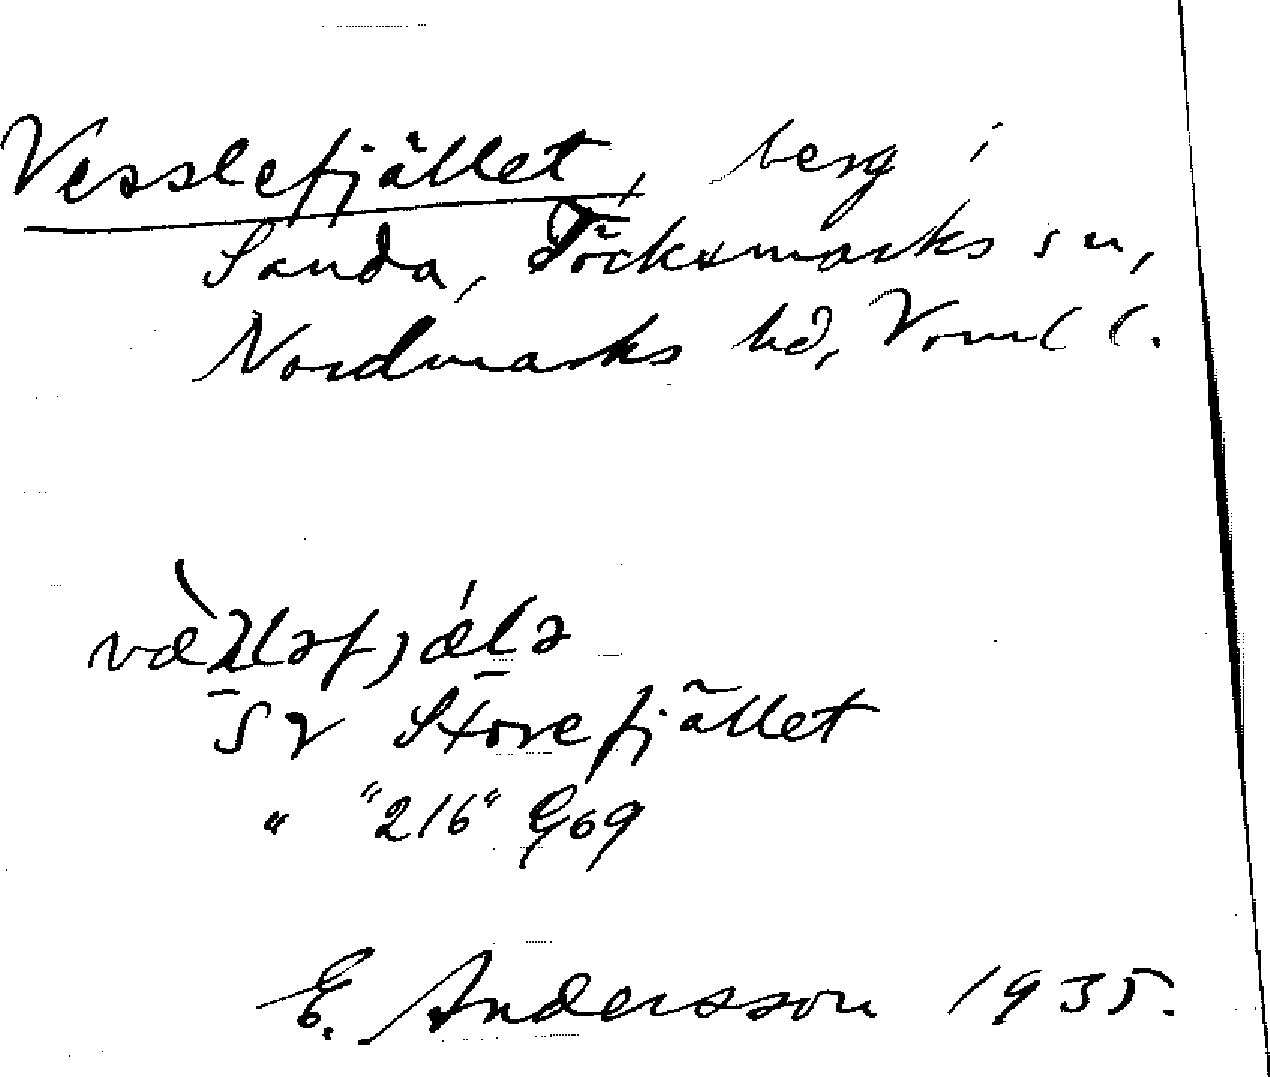 Vesslefjället, berg i
Sanda, Töcksmarks sn,
Nordmarks hd, Vrml l.
Storefjället
" "216" G69
E. Andersson 1935.